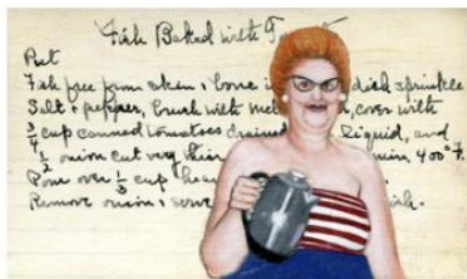 Fish Baked with
Put
Fish free from skin & bone dish sprinkle
Salt & pepper, brush with cover with
3/4 cup canned tomatoes drained liquid, and
1/2 onion cut very thin min, 400° F.
Pour over 1/3 cup
Remove onion & serve